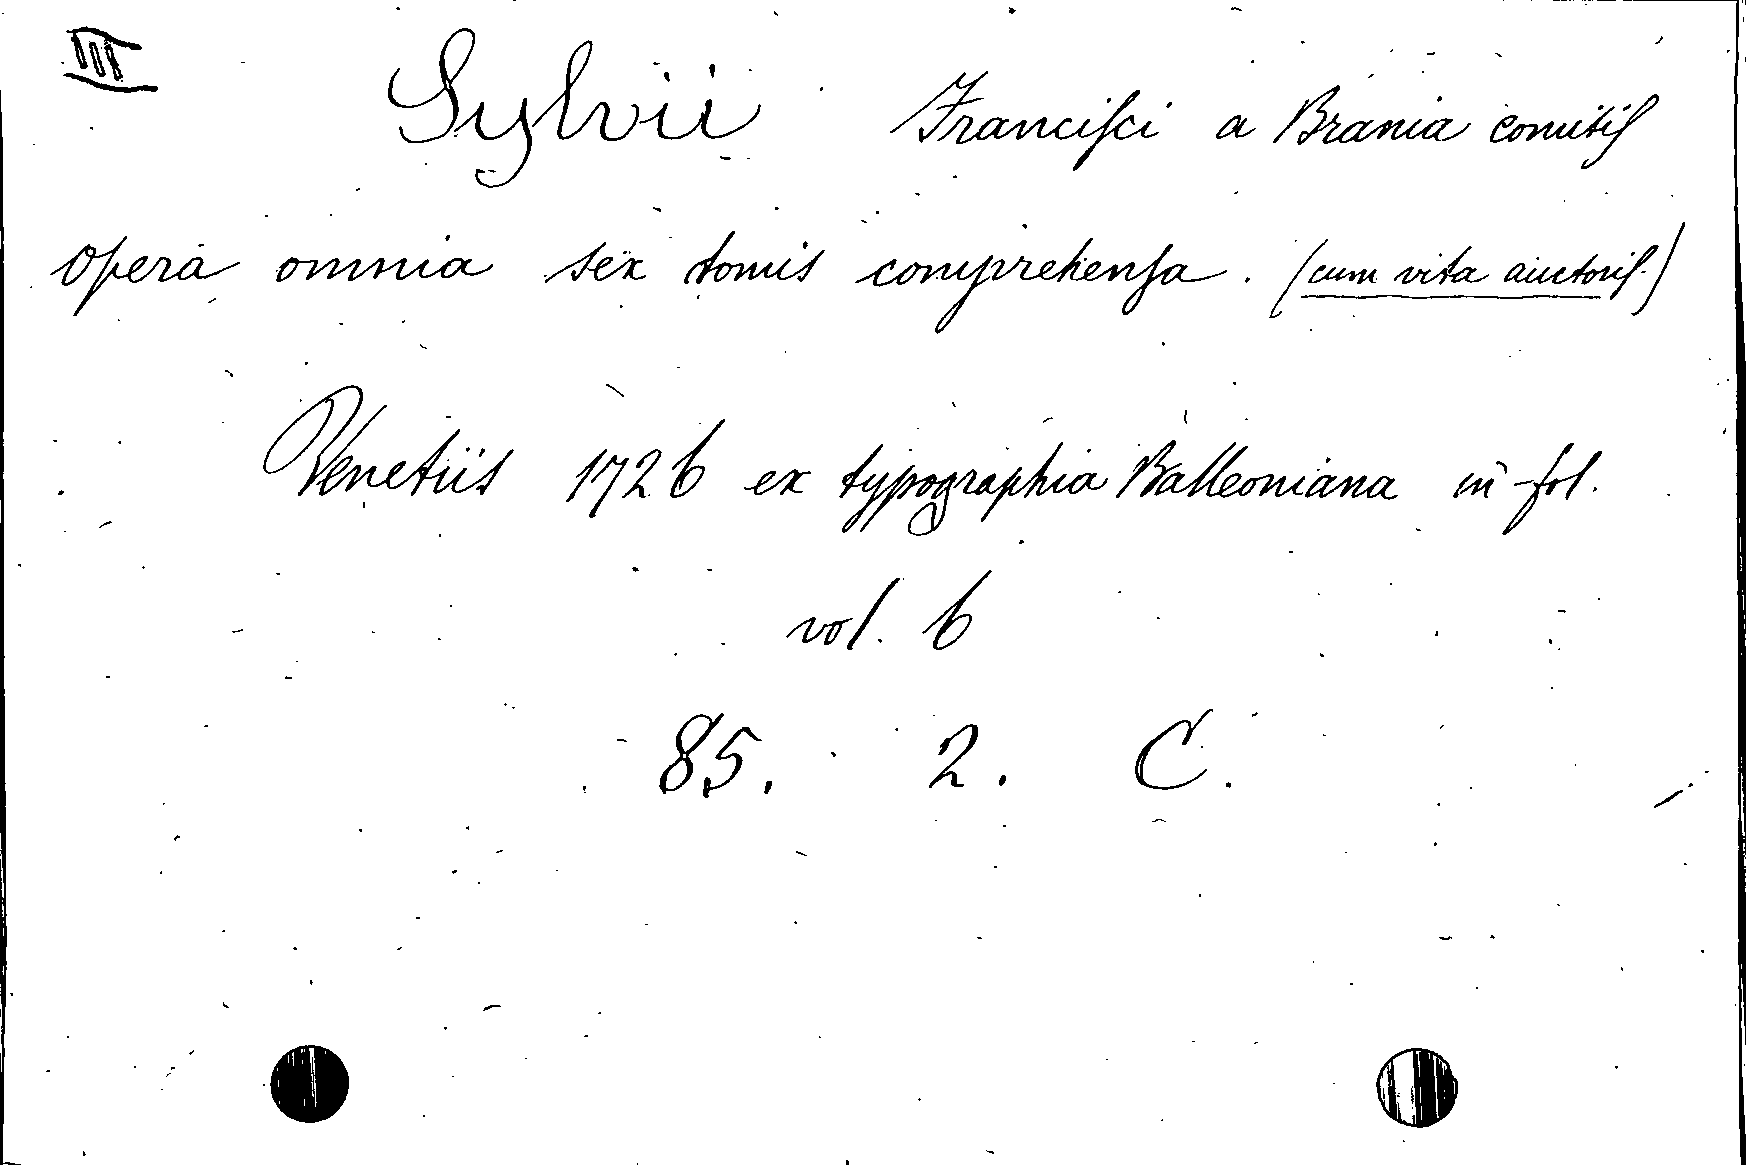 III
Sylvii Franciſci a Brania comitiſ
opera omnia sex tomis comprehenſa. (cum vita auctoriſ.)
Venetiis 1726 ex typographia Balleoniana in-fol.
vol. 6
85. 2. C.